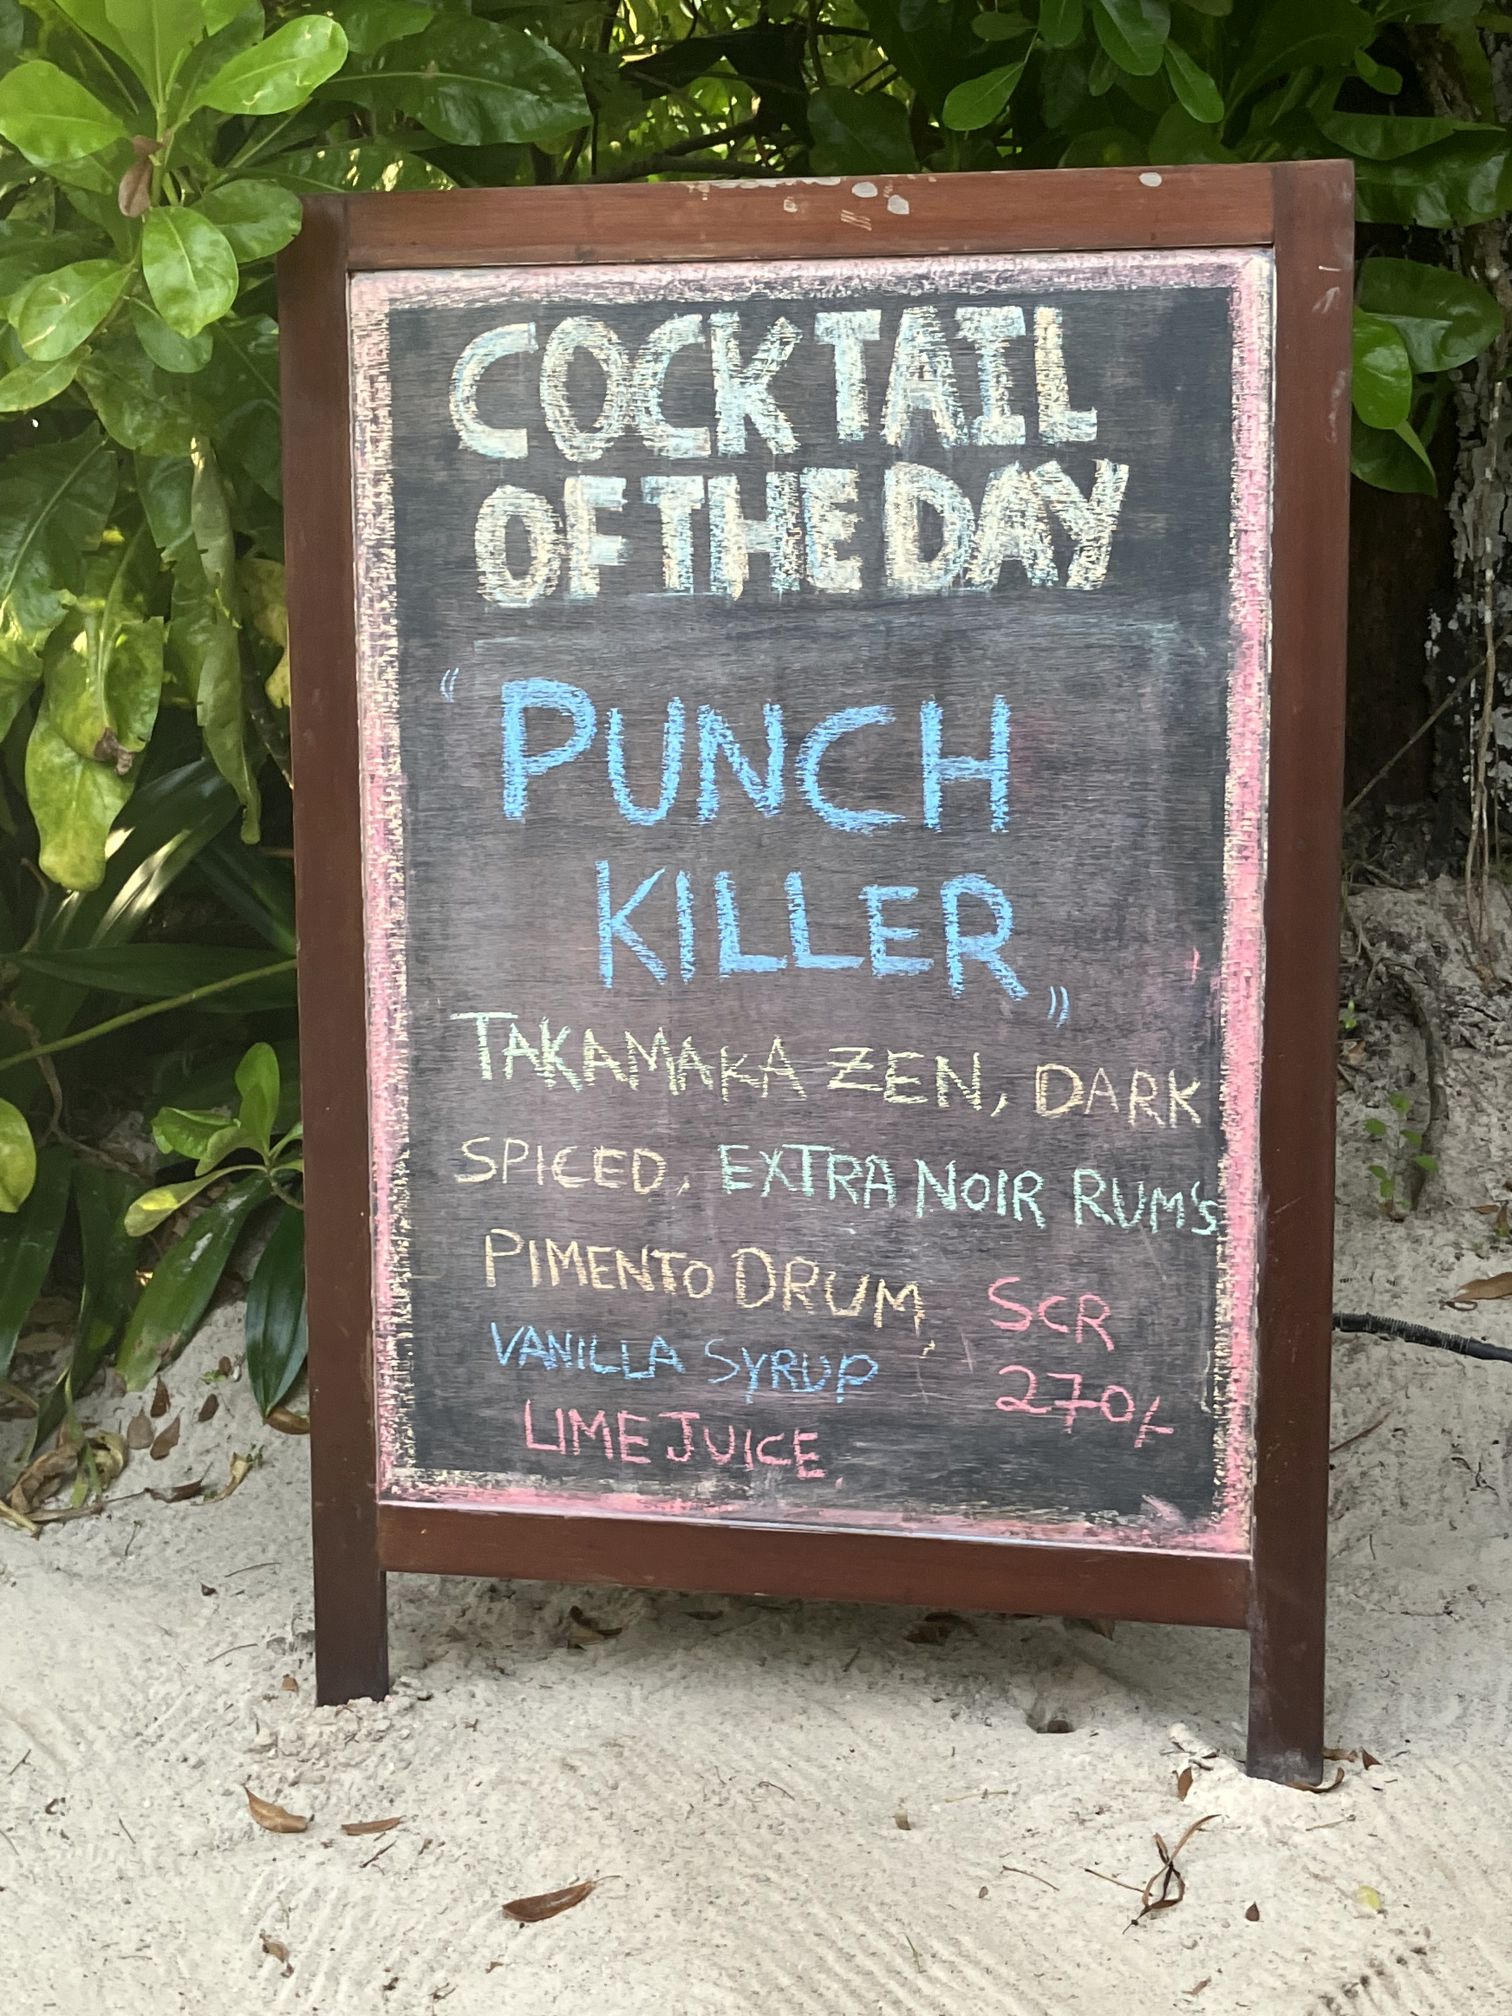 COCKTAIL
OF THE DAY
“PUNCH
KILLER”
TAKAMAKA ZEN, DARK
SPICED, EXTRA NOIR RUM'S
PIMENTO DRUM,
VANILLA SYRUP
LIME JUICE.
SCR
270/-